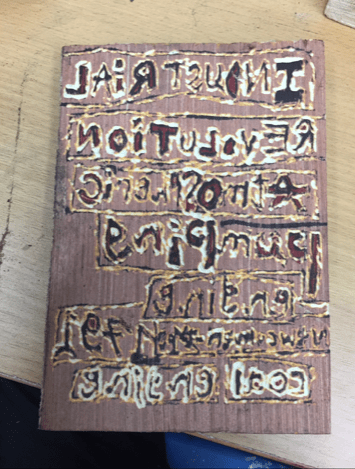 INDUSTRIAL
REVOLUTION
Atmospheric
pumping
engine
newcomen
coal engine